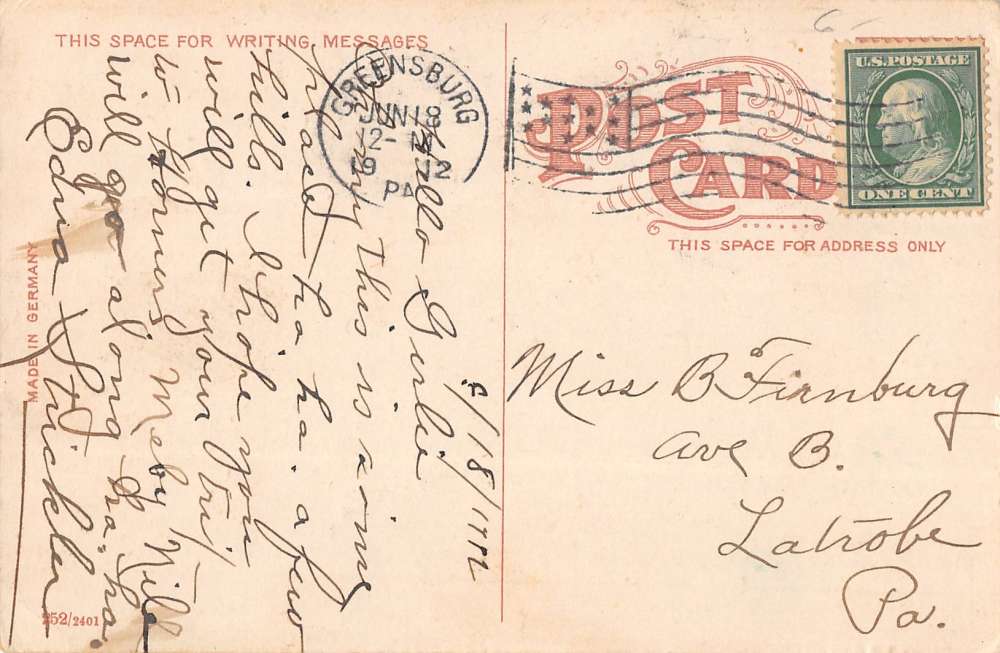 THIS SPACE FOR WRITING MESSAGES
6/18/1912
Hello Girlie
Say This is some
place ha ha. a few
hills. I hope you
will get your trip
to Homers Meby Nila
will go along ha. ha.
Edna Strickler
MADE IN GERMANY
252/2401
GREENSBURG
JUN 18
12-M
1912
PA
POST
CARD
U.S. POSTAGE
ONE CENT
THIS SPACE FOR ADDRESS ONLY
Miss B Firnburg
Ave B.
Latrobe
Pa.